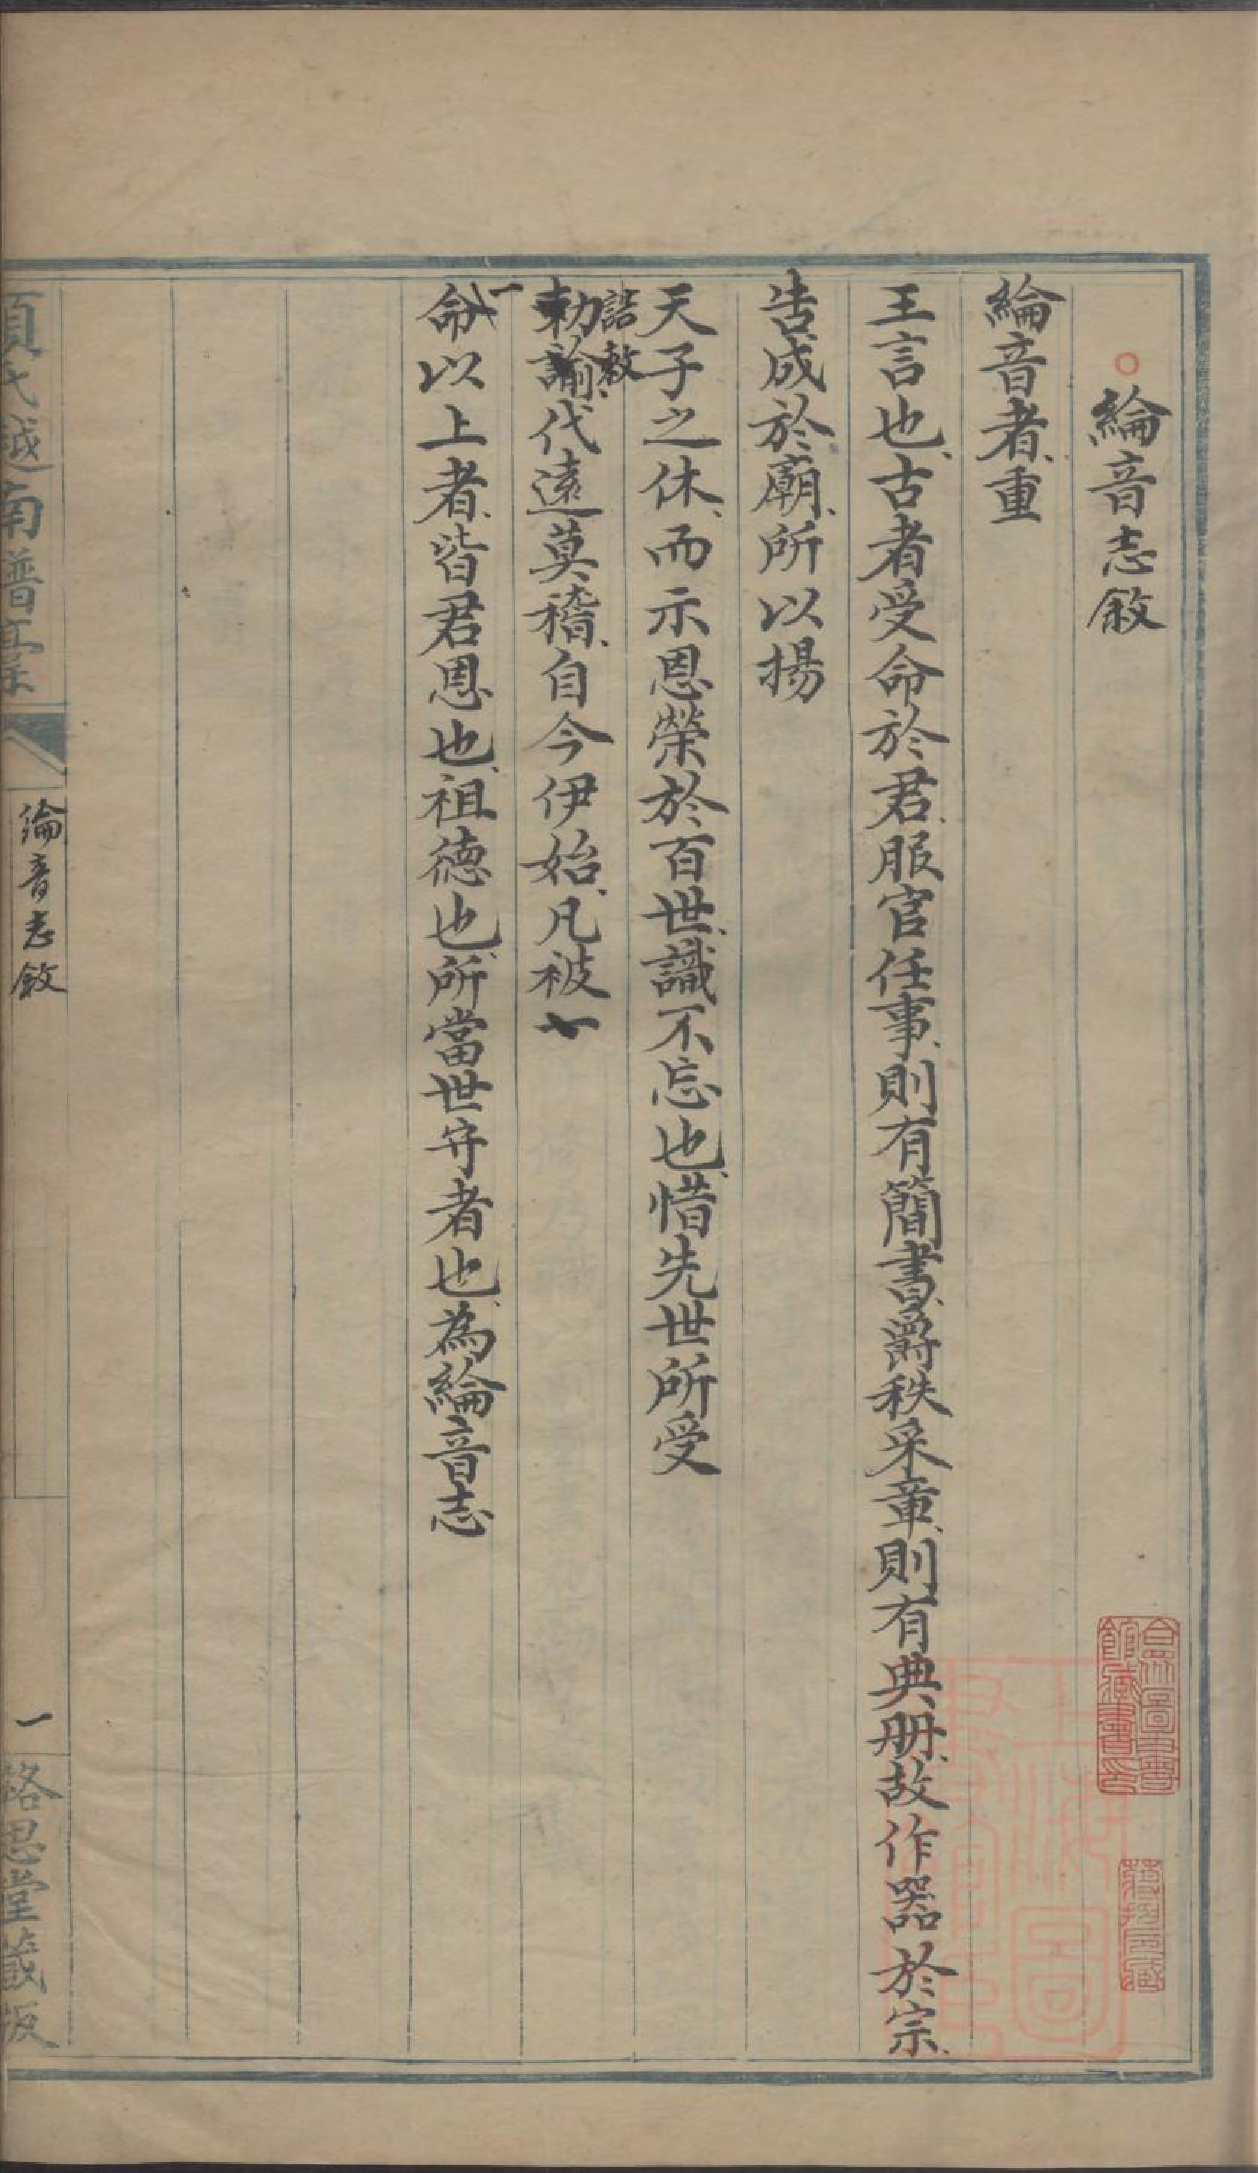 綸音志敘
綸音者、重
王言也、古者受命於君、服官任事、則有簡書、爵秩采章、則有典冊、故作器於宗、
告成於廟、所以揚
天子之休、而示恩榮於百世、識不忘也、惜先世所受
誥敕
勅諭、代遠莫稽、自今伊始、凡被一
一
命以上者、皆君恩也、祖德也、所當世守者也、為綸音志
項氏越南譜
綸音志敘
一
恪思堂藏板
合眾圖書館藏書印